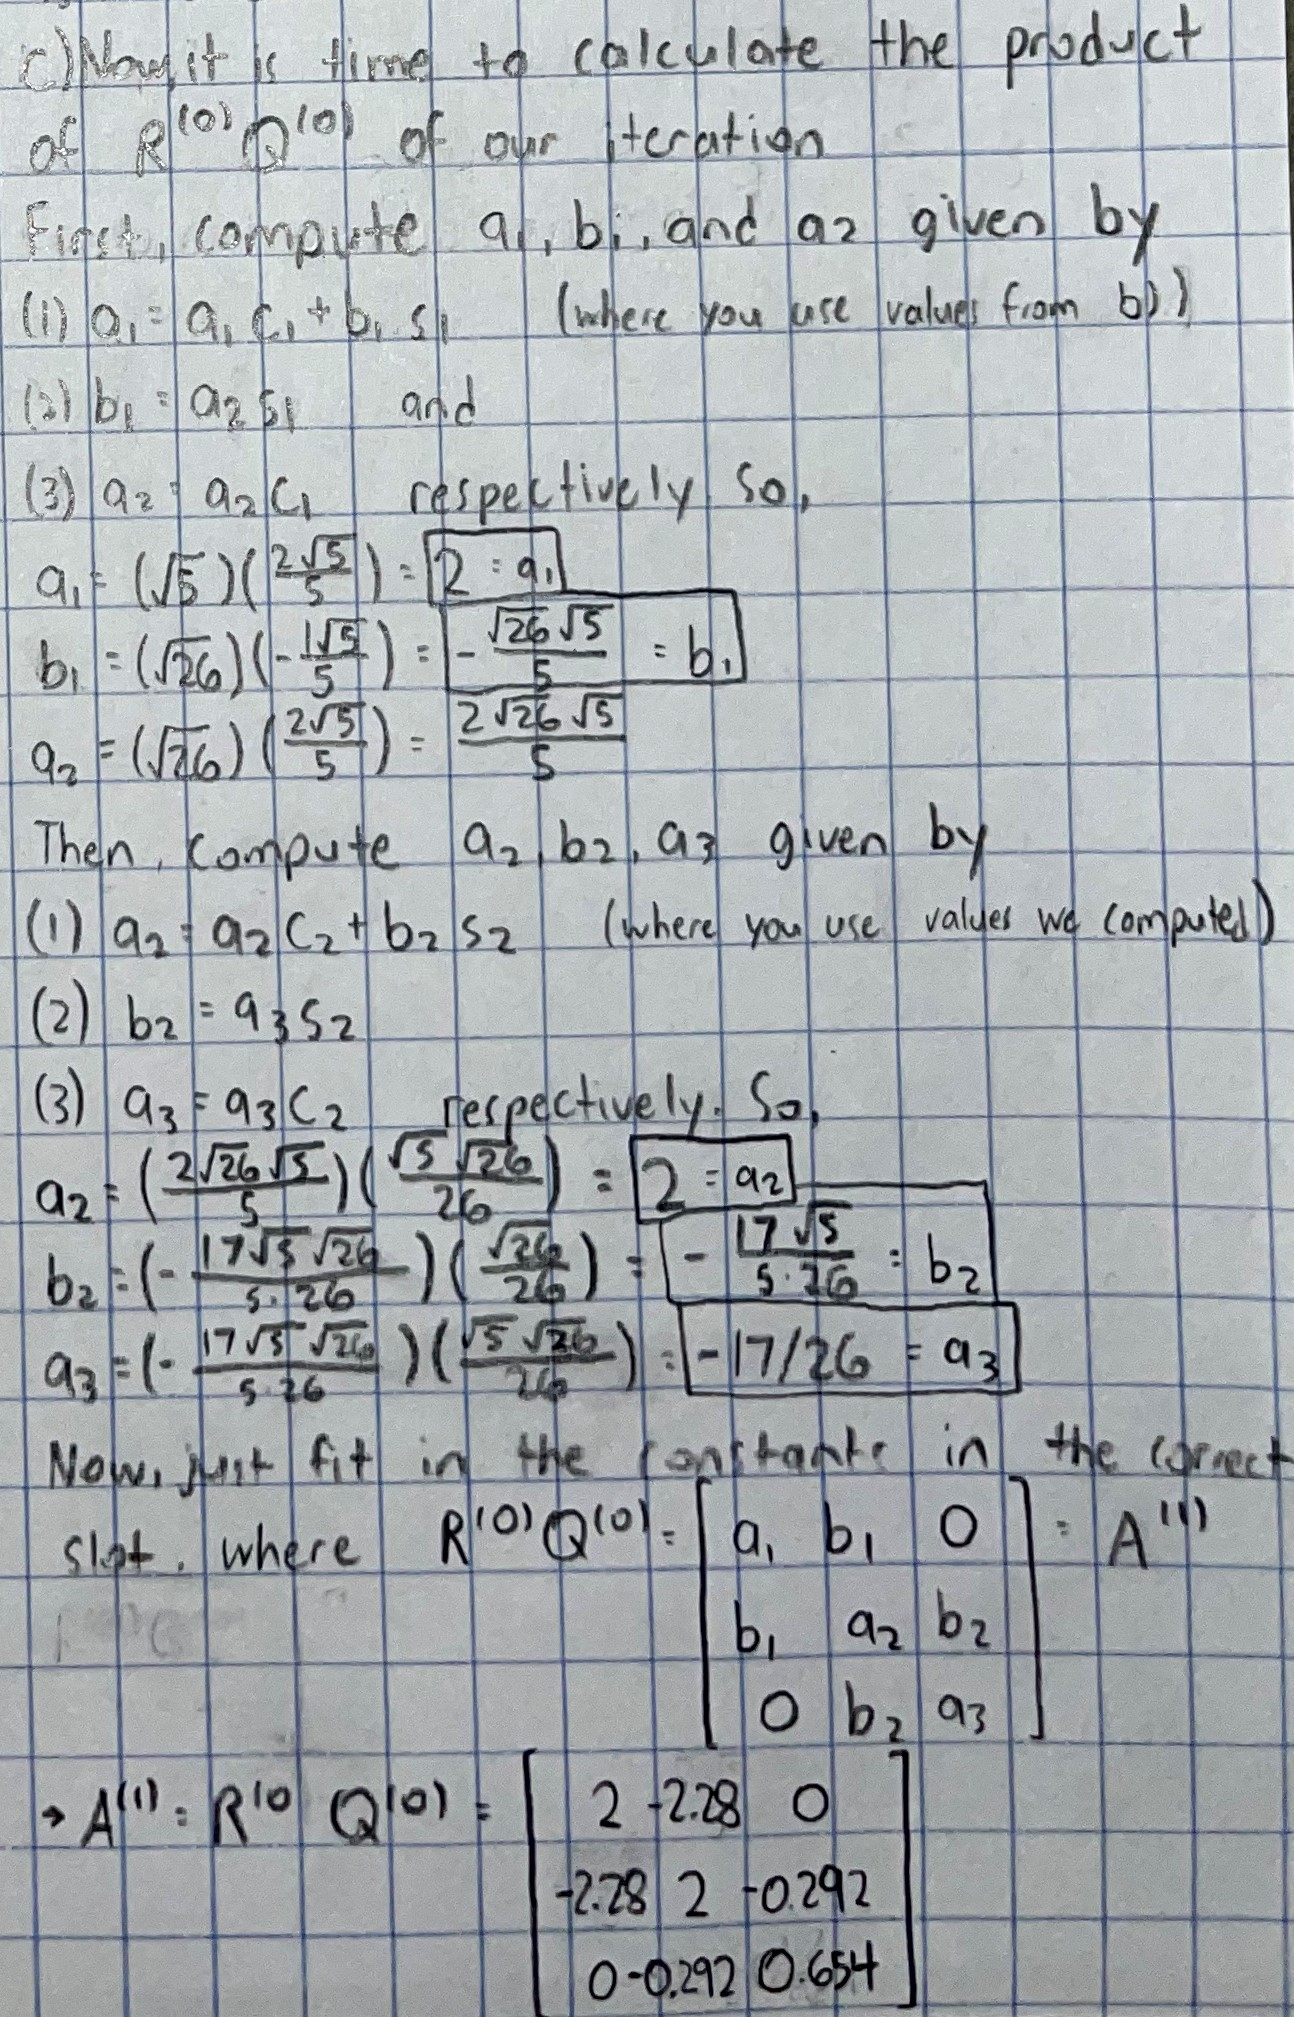 c) Now, it is time to calculate the product
of R^(0) Q^(0) of our iteration
First, compute a₁, b₁, and a₂ given by
(1) a₁ = a₁c₁ + b₁s₁ (where you use values from b))
(2) b₁ = a₂s₁ and
(3) a₂ = a₂c₁ respectively. So,
a₁ = (√5)(2√5/5) = 2 = a₁
b₁ = (√26)(-1√5/5) = -√26√5/5 = b₁
a₂ = (√26)(2√5/5) = 2√26√5/5
Then, compute a₂, b₂, a₃ given by
(1) a₂ = a₂c₂ + b₂s₂ (where you use values we computed)
(2) b₂ = a₃s₂
(3) a₃ = a₃c₂ respectively. So,
a₂ = (2√26√5/5)(√5√26/26) = 2 = a₂
b₂ = (-17√5√26/5·26)(√26/26) = -17√5/5·26 = b₂
a₃ = (-17√5√26/5·26)(√5√26/26) = -17/26 = a₃
Now, just fit in the constants in the correct
slot. where R^(0) Q^(0) = [a₁ b₁ 0 = A^(1)
b₁ a₂ b₂
0 b₂ a₃]
→ A^(1) = R^(0 Q^(0) = [2 -2.28 0
-2.28 2 -0.292
0 -0.292 0.654]